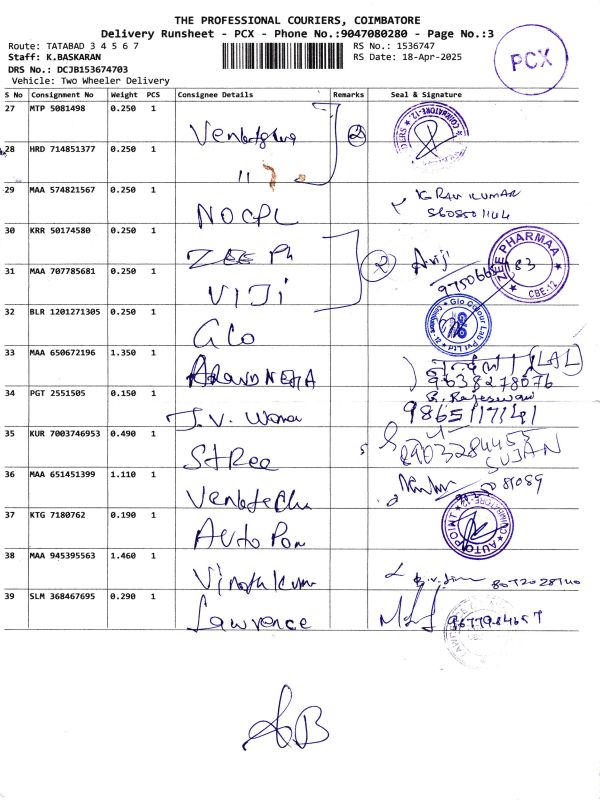 THE PROFESSIONAL COURIERS, COIMBATORE
Delivery Runsheet - PCX - Phone No.:9047080280 - Page No.:3
Route: TATABAD 3 4 5 6 7
RS No.: 1536747
Staff: K.BASKARAN
RS Date: 18-Apr-2025
DRS No.: DCJB153674703
Vehicle: Two Wheeler Delivery
PCX
S No Consignment No Weight PCS Consignee Details Remarks Seal & Signature
27 MTP 5081498 0.250 1
2
28 HRD 714851377 0.250 1 11
29 MAA 574821567 0.250 1 NOCPL
30 KRR 50174580 0.250 1 ZEE Ph
2
ZEE PHARMAA CBE-12
31 MAA 707785681 0.250 1 VIJI
32 BLR 1201271305 0.250 1 Glo Glo Colour Lab Pvt Ltd
33 MAA 650672196 1.350 1 (LAL)
9638278076
34 PGT 2551505 0.150 1 J.V.
R. Rajeswari
35 KUR 7003746953 0.490 1 Stree 8903284453
SUJAN
36 MAA 651451399 1.110 1
37 KTG 7180762 0.190 1 Auto Pon AUTOPOINT COIMBATORE-12
38 MAA 945395563 1.460 1 Vinothkumar
39 SLM 368467695 0.290 1 Lawrence 9677984657